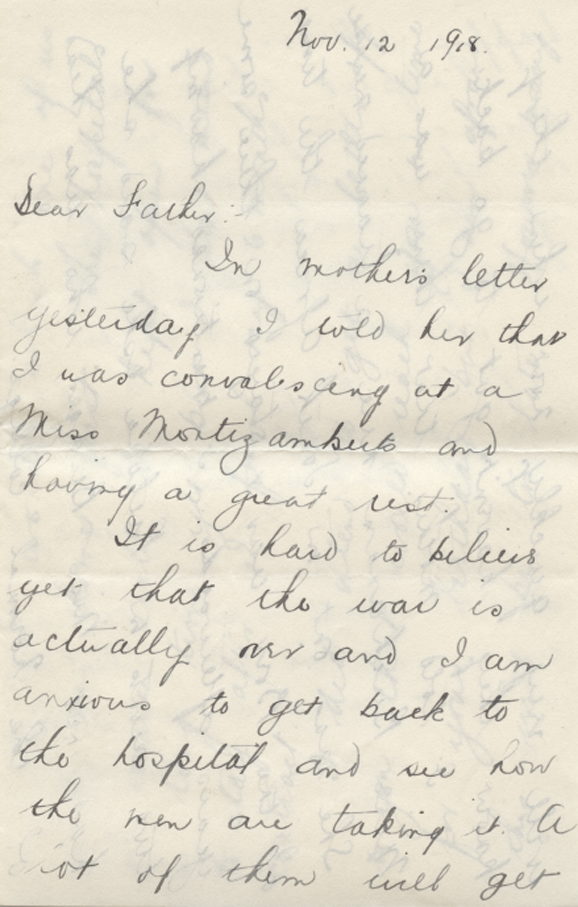 Nov. 12 1918.
Dear Father:-
In mother's letter
yesterday I told her that
I was convalescing at a
Miss Montizamberts and
having a great rest.
It is hard to believe
yet that the war is
actually over and I am
anxious to get back to
the hospital and see how
the men are taking it. A
lot of them will get